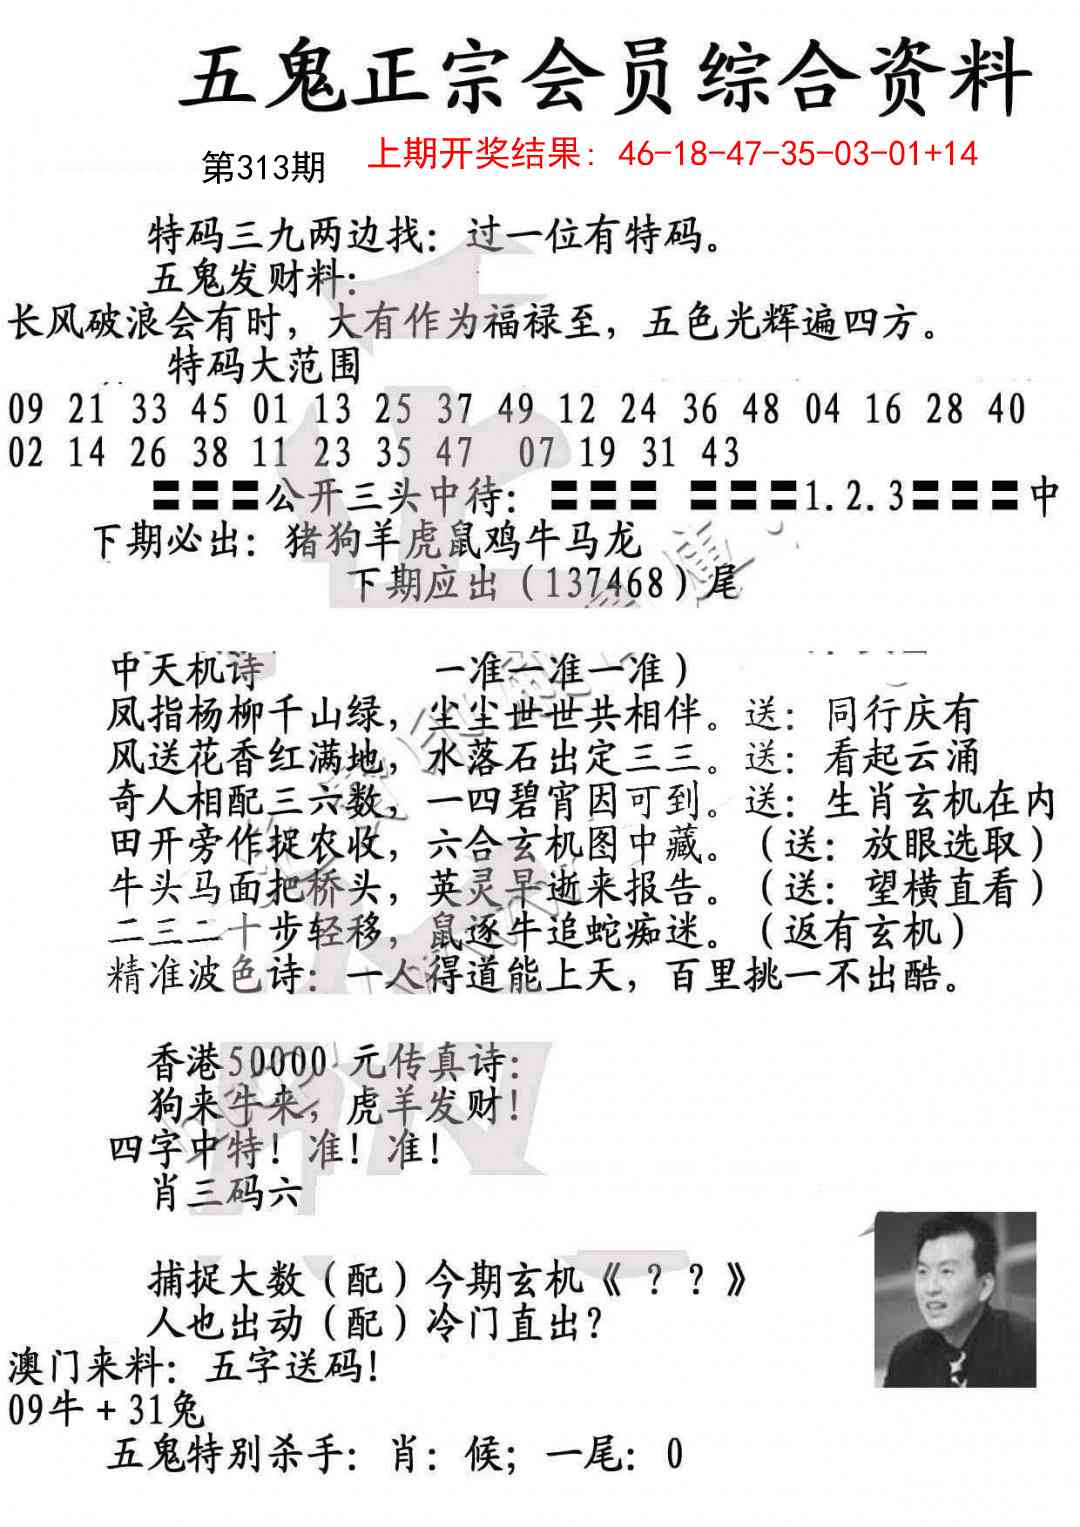 五鬼正宗会员综合资料
第313期 上期开奖结果: 46-18-47-35-03-01+14
特码三九两边找: 过一位有特码。
五鬼发财料:
长风破浪会有时, 大有作为福禄至, 五色光辉遍四方。
特码大范围
09 21 33 45 01 13 25 37 49 12 24 36 48 04 16 28 40
02 14 26 38 11 23 35 47 07 19 31 43
〓〓〓公开三头中待: 〓〓〓 〓〓〓1.2.3〓〓〓中
下期必出: 猪狗羊虎鼠鸡牛马龙
下期应出 (137468) 尾
中天机诗 一准一准一准)
凤指杨柳千山绿, 尘尘世世共相伴。送: 同行庆有
风送花香红满地, 水落石出定三三。送: 看起云涌
奇人相配三六数, 一四碧宵因可到。送: 生肖玄机在内
田开旁作捉农收, 六合玄机图中藏。(送: 放眼选取)
牛头马面把桥头, 英灵早逝来报告。(送: 望横直看)
二三二十步轻移, 鼠逐牛追蛇痴迷。(返有玄机)
精准波色诗: 一人得道能上天, 百里挑一不出酷。
香港50000 元传真诗:
狗来牛来, 虎羊发财!
四字中特! 准! 准!
肖三码六
捕捉大数 (配) 今期玄机《 ? ? 》
人也出动 (配) 冷门直出?
澳门来料: 五字送码!
09牛+31兔
五鬼特别杀手: 肖: 候; 一尾: 0